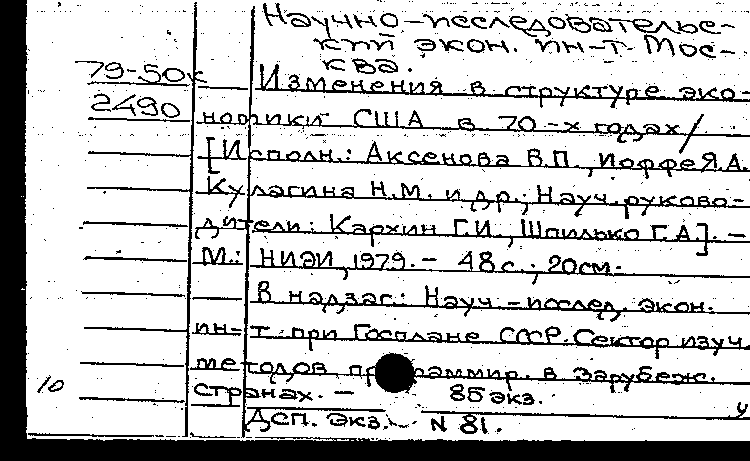 Научно-исследовательс-
кий экон. ин-т. Мос-
ква.
79-50к Изменения в структуре эко-
2490 номики США в 70-х годах/
[Исполн.: Аксенова В.П., Иоффе Я.А.
Кулагина Н.М. и др.; Науч. руково-
дители: Кархин Г.И., Шпилько Г.А.]. –
М.: НИЭИ, 1979. – 48 с.; 20см.
В надзаг.: Науч-исслед. экон.
ин-т. при Госплане СССР. Сектор изуч.
методов программир. в зарубеж.
10 странах. – 85 экз. у
Дсп. Экз. N 81.